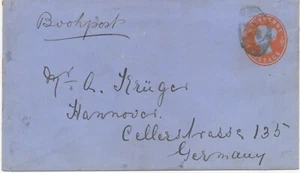 Bookpost
Mr. A. Krüger
Hannover.
Cellerstrasse 135
Germany